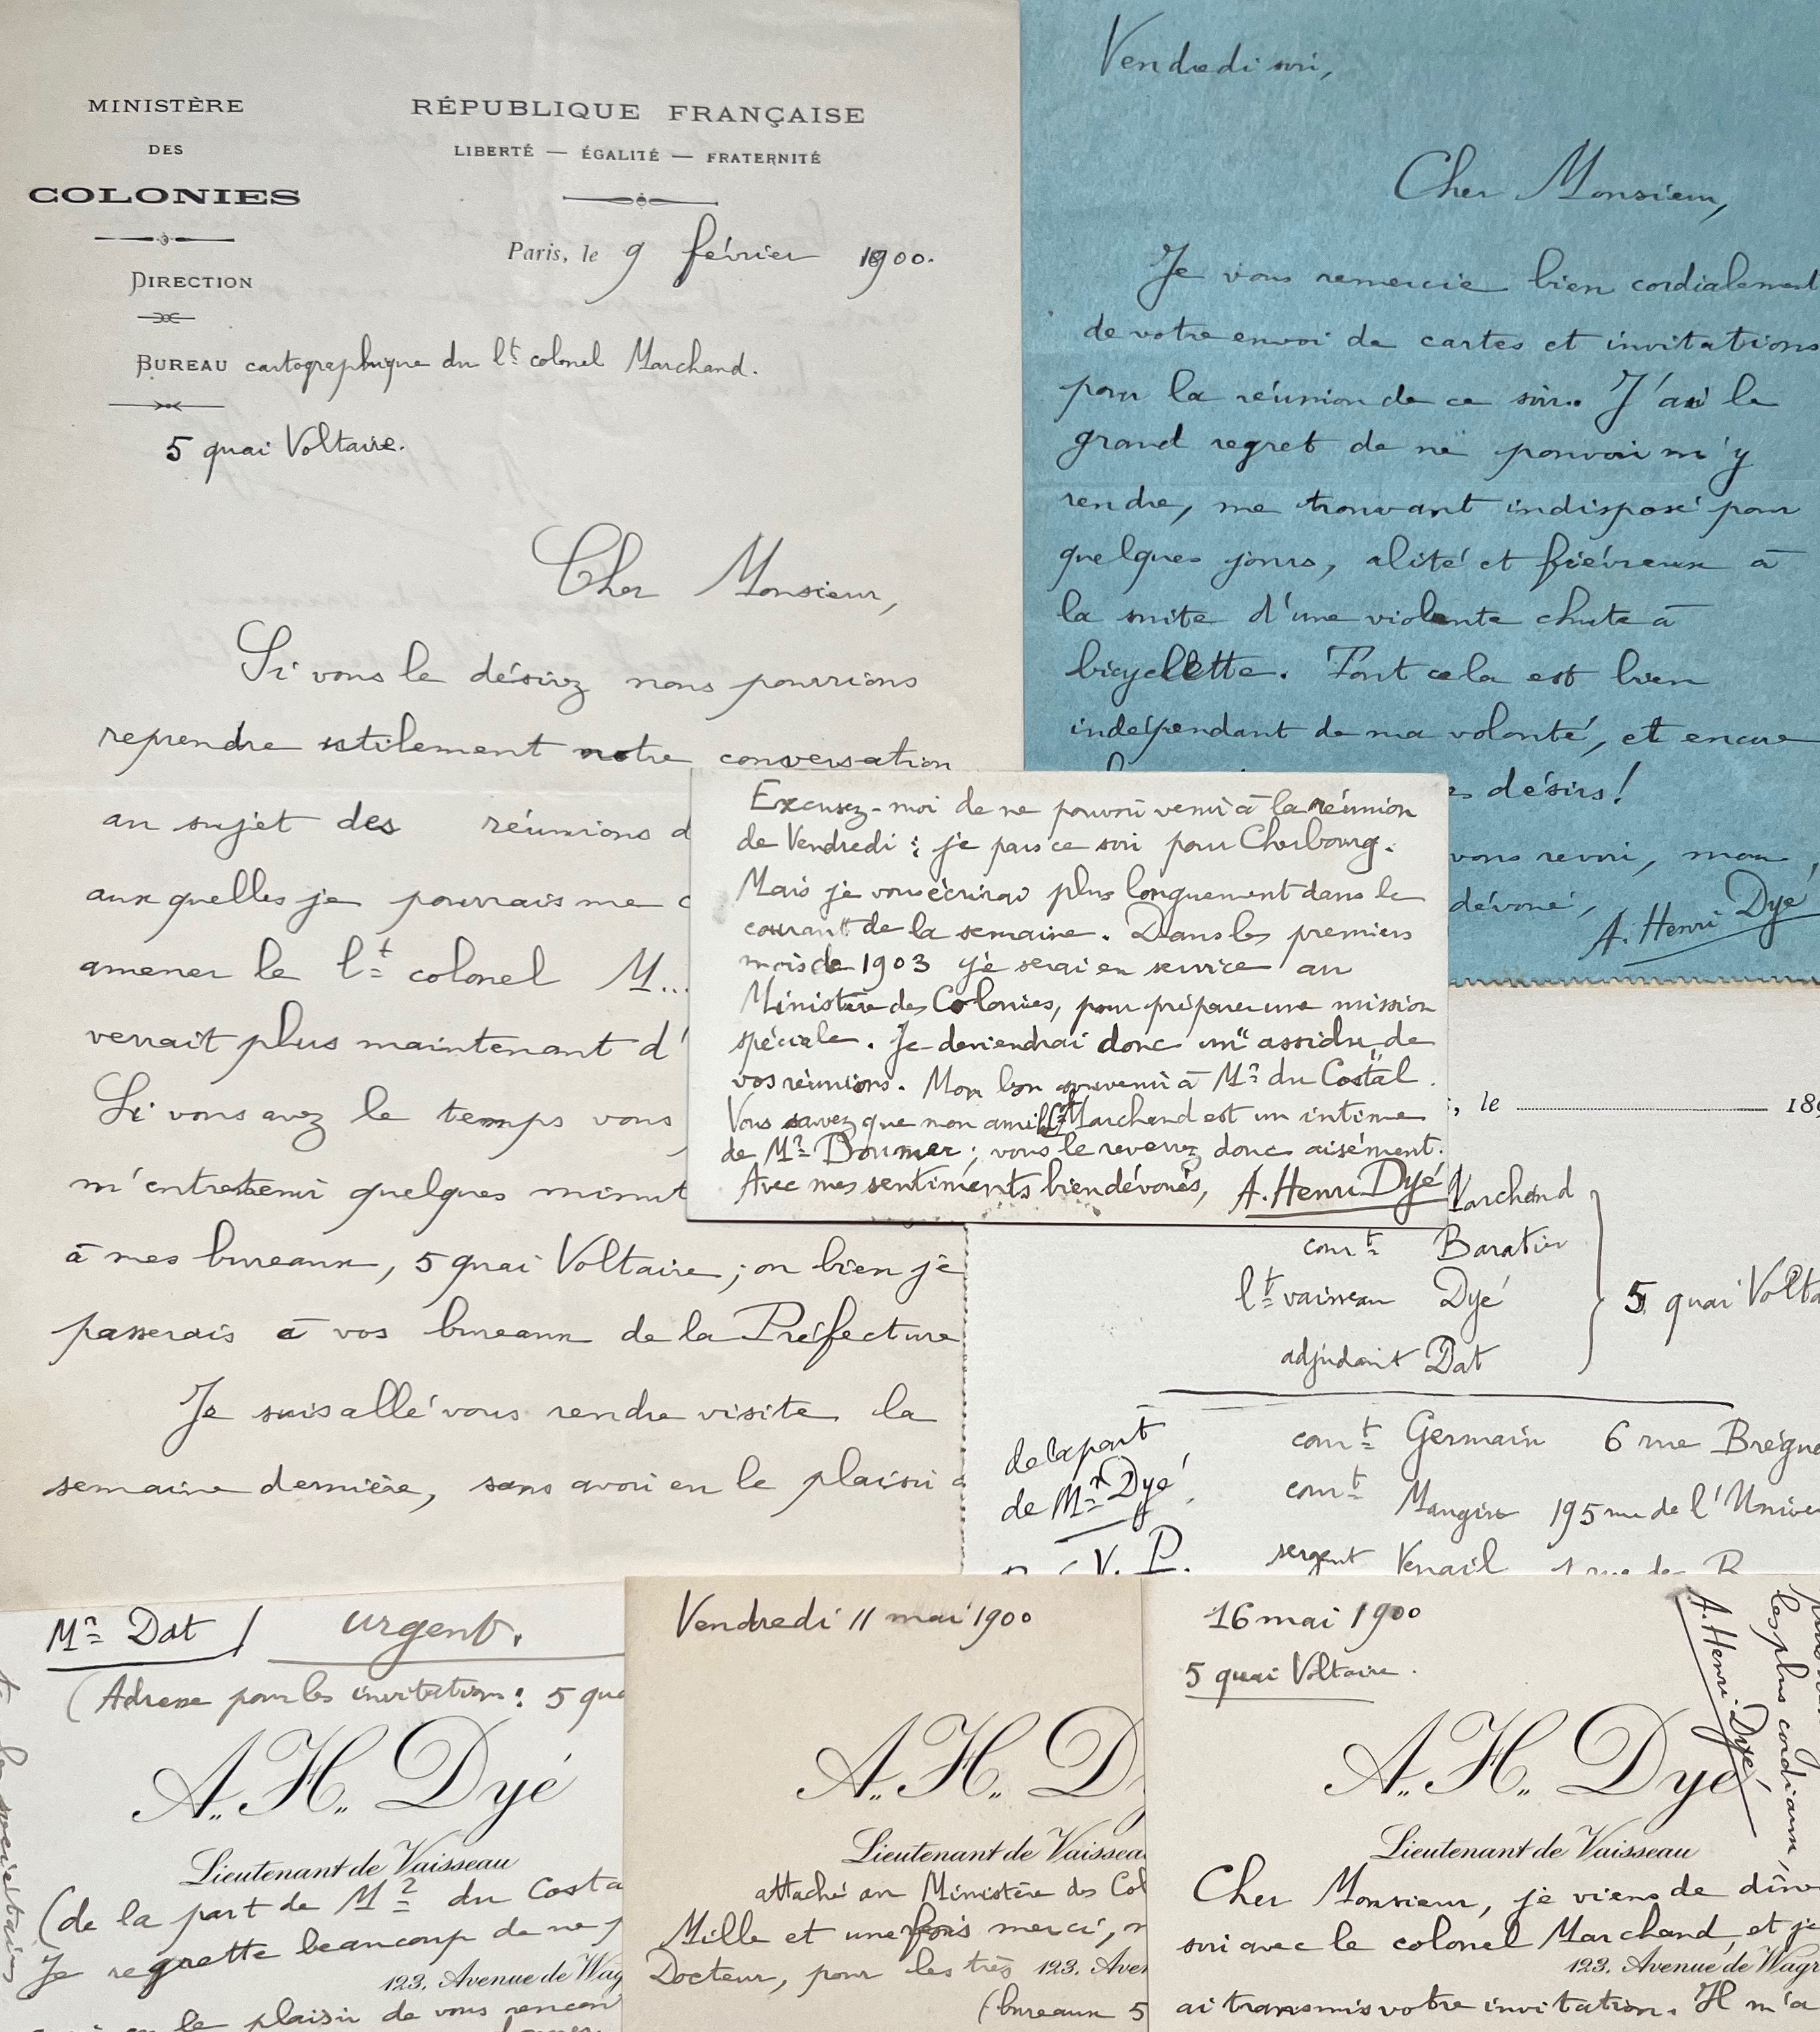 MINISTÈRE
DES
COLONIES
DIRECTION
BUREAU cartographique du lt colonel Marchand.
5 quai Voltaire.
RÉPUBLIQUE FRANÇAISE
LIBERTÉ — ÉGALITÉ — FRATERNITÉ
Paris, le 9 février 1900.
Cher Monsieur,
Si vous le désirez nous pourrions
reprendre utilement notre conversation
au sujet des réunions d
auxquelles je pourrais me
amener le lt colonel M...
verrait plus maintenant d'
Si vous avez le temps vous
m'entretenir quelques minut
à mes bureaux, 5 quai Voltaire; ou bien je
passerais à vos bureaux de la Préfecture
Je suis allé vous rendre visite la
semaine dernière, sans avoir eu le plaisir
Vendredi soir,
Cher Monsieur,
Je vous remercie bien cordialement
de votre envoi de cartes et invitations
pour la réunion de ce soir. J'ai le
grand regret de ne pouvoir m'y
rendre, me trouvant indisposé pour
quelques jours, alité et fiévreux à
la suite d'une violente chute à
bicyclette. Tout cela est bien
indépendant de ma volonté, et encore
désirs!
vous revoir, mon
dévoué,
A. Henri Dyé
Excusez-moi de ne pouvoir venir à la réunion
de Vendredi : je pars ce soir pour Cherbourg.
Mais je vous écrirai plus longuement dans le
courant de la semaine. Dans les premiers
mois de 1903 je serai en service au
Ministère des Colonies, pour préparer une mission
spéciale. Je deviendrai donc un "assidu" de
vos réunions. Mon bon souvenir à Mr du Costal.
Vous savez que mon ami Marchand est un intime
de Mr Doumer; vous le reverrez donc aisément.
Avec mes sentiments bien dévoués, A. Henri Dyé
, le 189
Marchand
comt Baratier
lt vaisseau Dyé
adjudant Dat
5 quai Volta
de la part
de Mr Dyé
V. P.
comt Germain 6 rue Brégue
comt Mangin 195 rue de l'Unive
sergent Venail
Mr Dat / urgent.
(Adresse pour les invitations: 5 qua
A. H. Dyé
Lieutenant de Vaisseau
(de la part de Mr du Costa
Je regrette beaucoup de ne p
123, Avenue de Wag
le plaisir de vous rencon
Vendredi 11 mai 1900
A. H. D
Lieutenant de Vaissea
attaché au Ministère des Col
Mille et une fois merci,
Docteur, pour les très 123, Aven
(bureaux 5
16 mai 1900
5 quai Voltaire.
A. H. Dyé
Lieutenant de Vaisseau
Cher Monsieur, je viens de dîne
soir avec le colonel Marchand, et je
123, Avenue de Wagr
ai transmis votre invitation. Il m'a
les plus cordiaux,
A. Henri Dyé